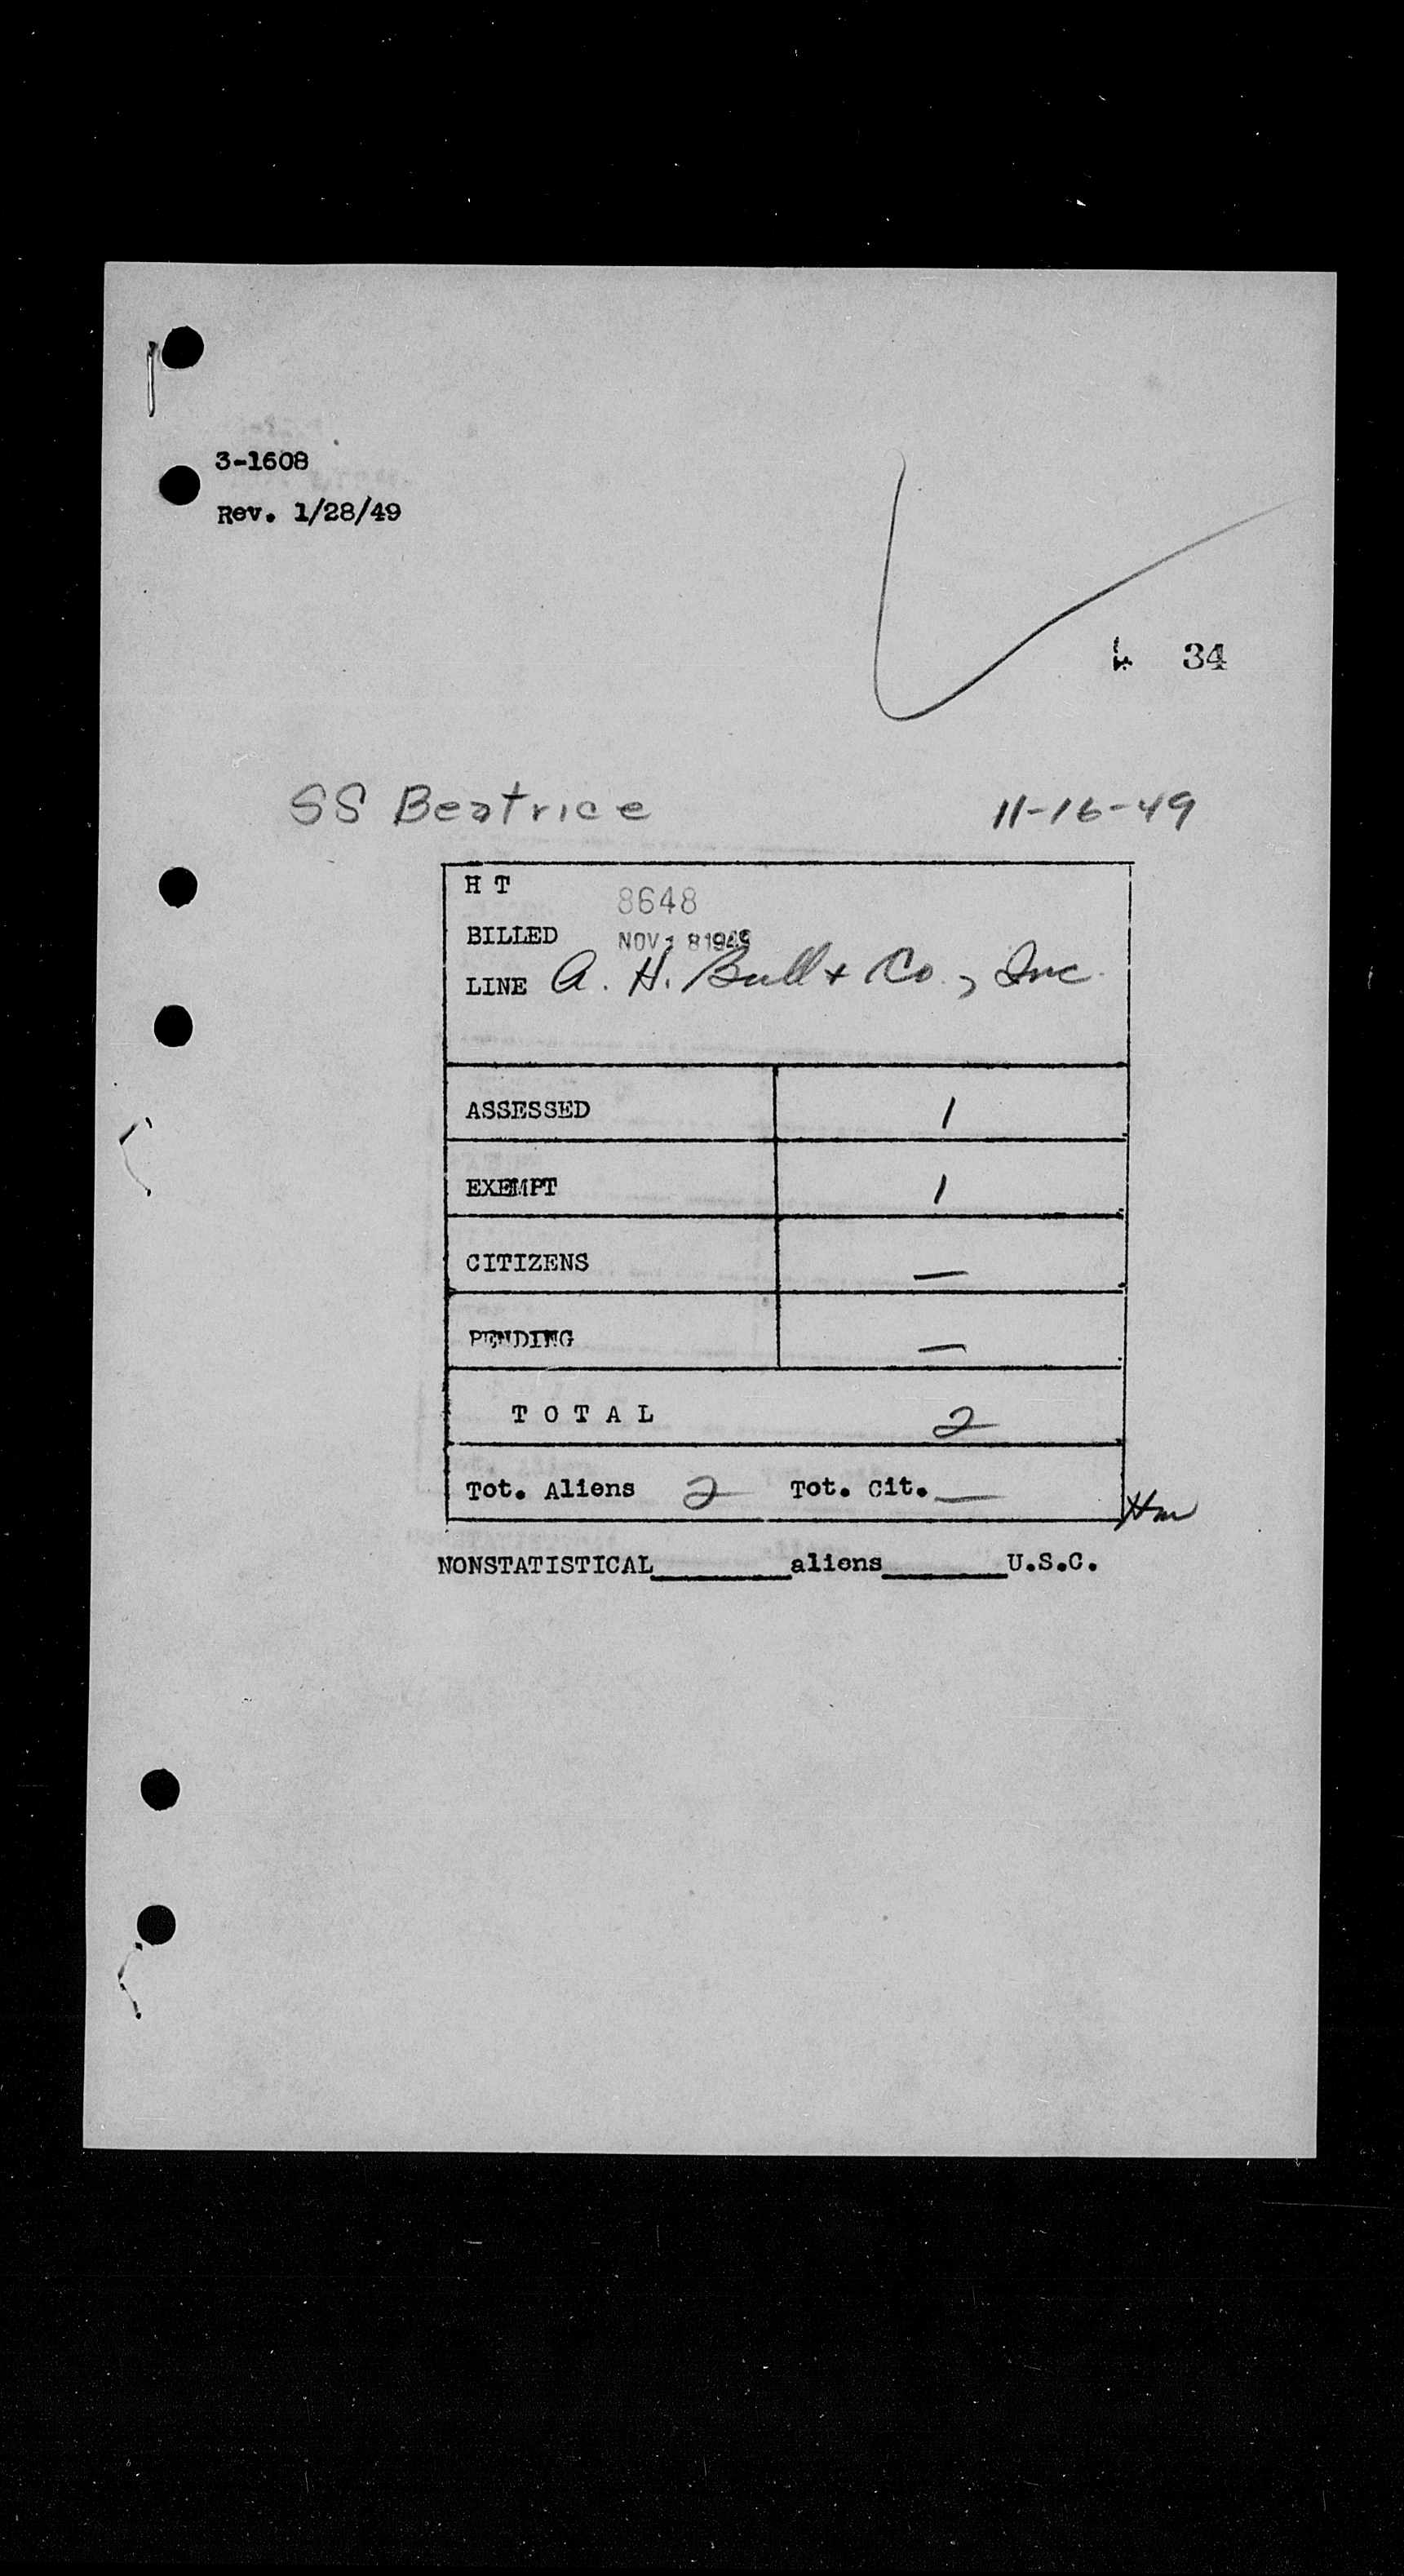 3-1608
Rev. 1/28/49
34
SS Beatrice 11-16-49
H T 8648
BILLED NOV 18 1949
LINE A. H. Bull & Co., Inc.
ASSESSED 1
EXEMPT 1
CITIZENS —
PENDING —
T O T A L 2
Tot. Aliens 2 Tot. Cit. —
NONSTATISTICAL________aliens_______U.S.C.